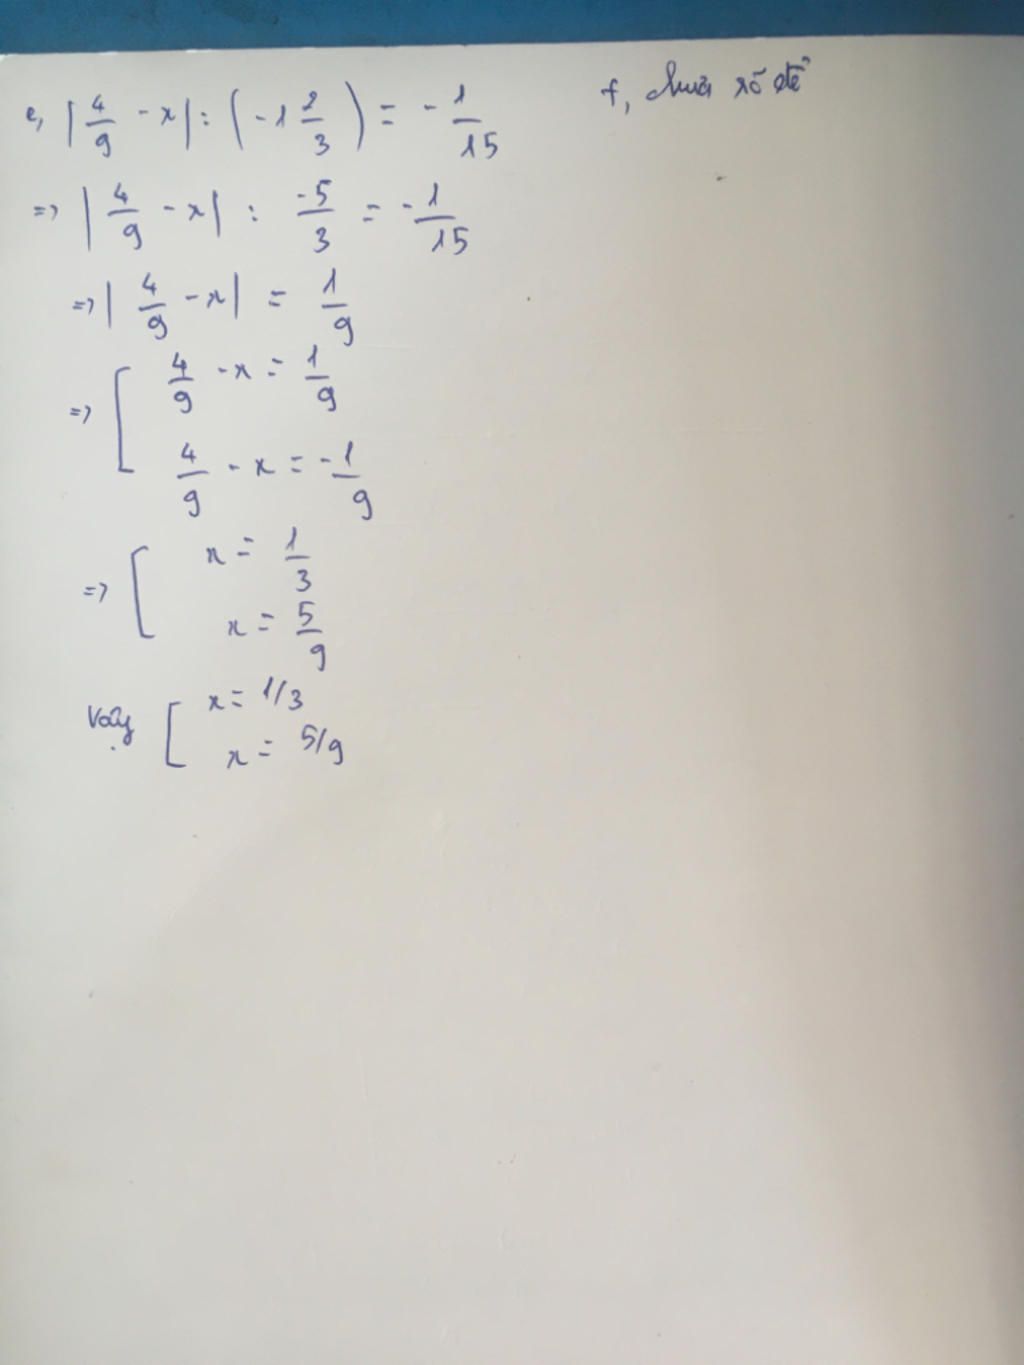 e, |4/9 - x| : (-1 2/3) = -1/15
f, chưa rõ đề
=> |4/9 - x| : -5/3 = -1/15
=> |4/9 - x| = 1/9
=> [ 4/9 - x = 1/9
4/9 - x = -1/9
=> [ x = 1/3
x = 5/9
Vậy [ x = 1/3
x = 5/9